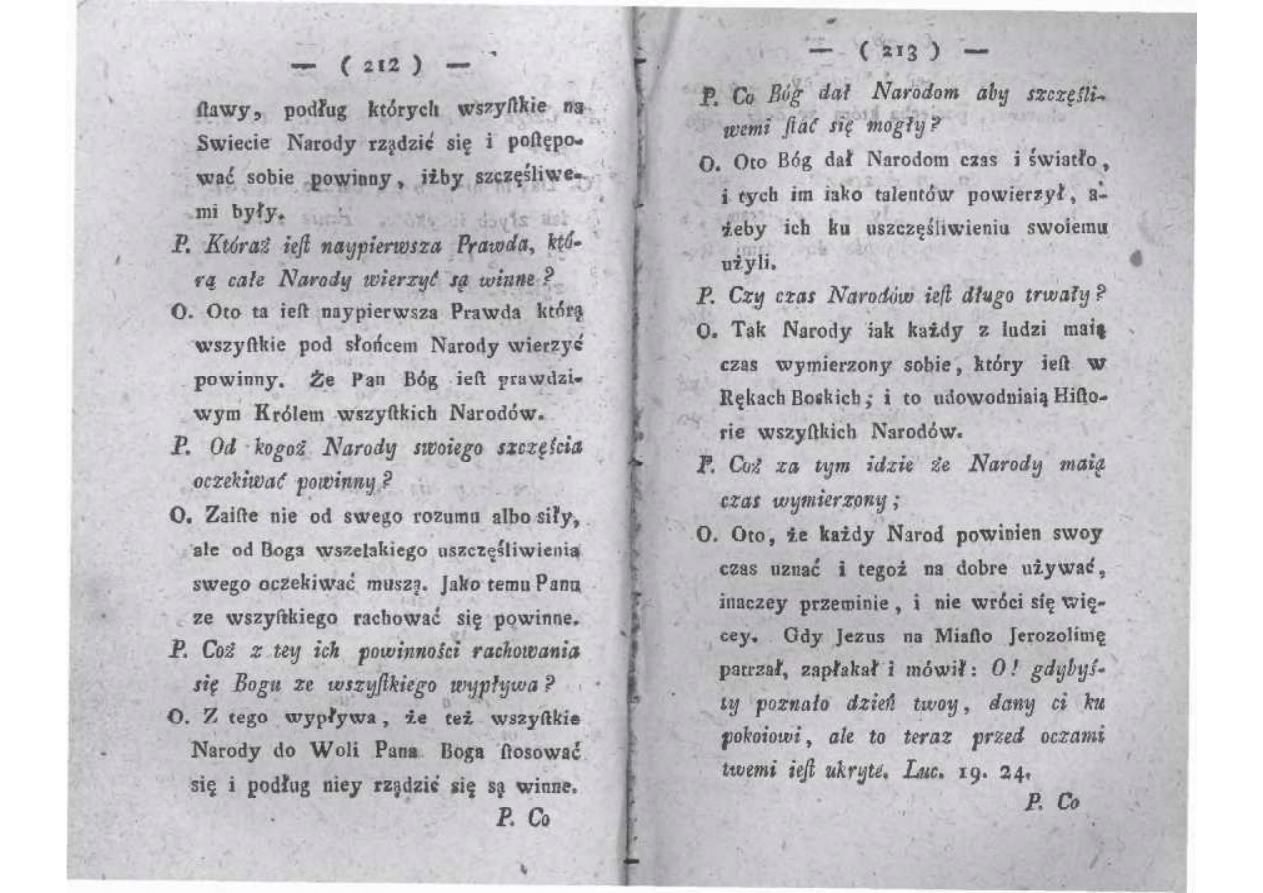 — ( 212 ) —
ſtawy, podług których wszyſtkie na
Swiecie Narody rządzić się i poſtępo-
wać sobie powinny, iżby szczęśliwe-
mi były.
P. Któraż ieſt naypierwsza Prawda, któ-
rą całe Narody wierzyć są winne?
O. Oto ta ieſt naypierwsza Prawda którą
wszyſtkie pod słońcem Narody wierzyć
powinny. Że Pan Bóg ieſt prawdzi-
wym Królem wszyſtkich Narodów.
P. Od kogoż Narody swoiego szczęścia
oczekiwać powinny?
O. Zaiſte nie od swego rozumu albo siły,
ale od Boga wszelakiego uszczęśliwienia
swego oczekiwać muszą. Jako temu Panu
ze wszyſtkiego rachować się powinne.
P. Coż z tey ich powinności rachowania
się Bogu ze wszyſtkiego wypływa?
O. Z tego wypływa, że też wszyſtkie
Narody do Woli Pana Boga ſtosować
się i podług niey rządzić się są winne.
P. Co
— ( 213 ) —
P. Co Bóg dał Narodom aby szczęśli-
wemi ſtać się mogły?
O. Oto Bóg dał Narodom czas i światło,
i tych im iako talentów powierzył, a-
żeby ich ku uszczęśliwieniu swoiemu
użyli.
P. Czy czas Narodów ieſt długo trwały?
O. Tak Narody iak każdy z ludzi maią
czas wymierzony sobie, który ieſt w
Rękach Boskich; i to udowodniaią Hiſto-
rie wszyſtkich Narodów.
P. Coż za tym idzie że Narody maią
czas wymierzony;
O. Oto, że każdy Narod powinien swoy
czas uznać i tegoż na dobre używać,
inaczey przeminie, i nie wróci się wię-
cey. Gdy Jezus na Miaſto Jerozolimę
patrzał, zapłakał i mówił: O! gdybyś-
ty poznało dzień twoy, dany ci ku
pokoiowi, ale to teraz przed oczami
twemi ieſt ukryte. Luc. 19. 24.
P. Co